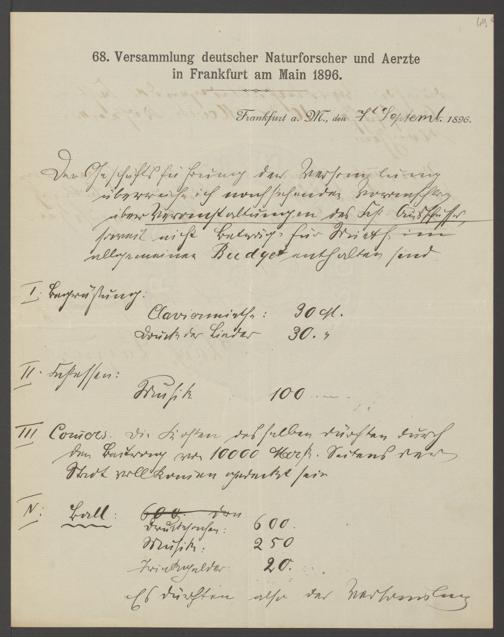 68. Versammlung deutscher Naturforscher und Aerzte
in Frankfurt am Main 1896.
Frankfurt a. M., den 7t Septembr. 1896.
Der Geschäftsführung der Versammlung
überreiche ich nachstehenden Voranschlag
über Veranstaltungen des Fest Ausschusses,
soweit nicht Beträge für Musik im
allgemeinen Budget enthalten sind
I. Begrüßung:
Claviermiethe: 30 M.
Druck der Lieder 30. "
II. Festessen:
Musik 100
III Comers. Die Kosten desselben dürften durch
den Beitrag von 10000 Mark Seitens der
Stadt vollkommen gedeckt sein
IV. Ball: 600. den
Drucksachen: 600.
Musik: 250
Trinkgelder 20.
Es dürften also der Versammlung